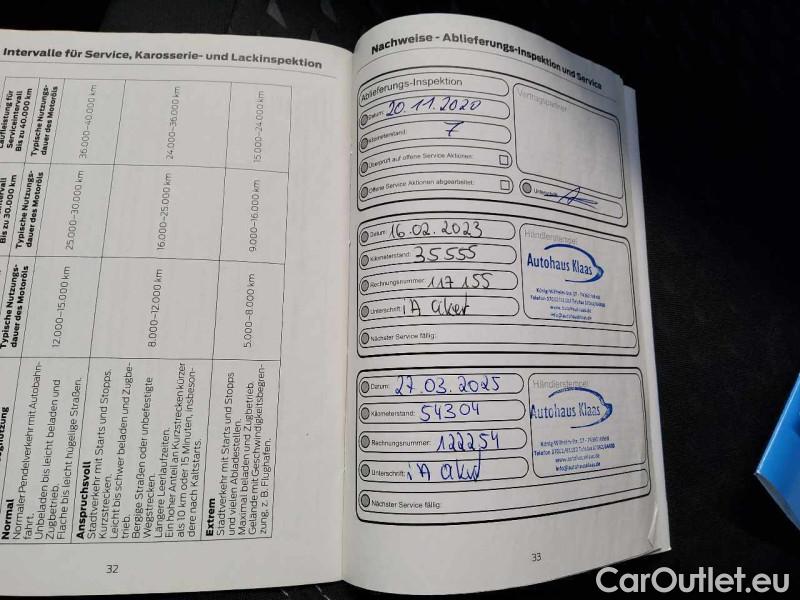 Intervalle für Service, Karosserie- und Lackinspektion
Laufleistung für
Serviceintervall
Bis zu 40.000 km
Typische Nutzungs-
dauer des Motoröls
36.000–40.000 km
24.000–36.000 km
15.000–24.000 km
Bis zu 30.000 km
Typische Nutzungs-
dauer des Motoröls
25.000–30.000 km
16.000–25.000 km
9.000–16.000 km
Typische Nutzungs-
dauer des Motoröls
12.000–15.000 km
8.000–12.000 km
5.000–8.000 km
Normal
Normaler Pendelverkehr mit Autobahn-
fahrt.
Unbeladen bis leicht beladen und
Zugbetrieb.
Flache bis leicht hügelige Straßen.
Anspruchsvoll
Stadtverkehr mit Starts und Stopps.
Kurzstrecken.
Leicht bis schwer beladen und Zugbe-
trieb.
Bergige Straßen oder unbefestigte
Wegstrecken.
Längere Leerlaufzeiten.
Ein hoher Anteil an Kurzstrecken kürzer
als 10 km oder 15 Minuten, insbeson-
dere nach Kaltstarts.
Extrem
Stadtverkehr mit Starts und Stopps
und vielen Abladestellen.
Maximal beladen und Zugbetrieb.
Gelände mit Geschwindigkeitsbegren-
zung, z. B. Flughäfen.
32
Nachweise - Ablieferungs-Inspektion und Service
Ablieferungs-Inspektion
Vertragspartner
Datum: 20.11.2020
Kilometerstand: 7
Überprüft auf offene Service Aktionen:
Offene Service Aktionen abgearbeitet:
Unterschrift
Datum: 16.02.2023
Kilometerstand: 35555
Rechnungsnummer: 117155
Unterschrift: iA
Nächster Service fällig:
Händlerstempel
Autohaus Klaas
info@autohausklaas.de
Datum: 27.03.2025
Kilometerstand: 54304
Rechnungsnummer: 122254
Unterschrift: iA
Nächster Service fällig:
Händlerstempel
Autohaus Klaas
info@autohausklaas.de
33
CarOutlet.eu